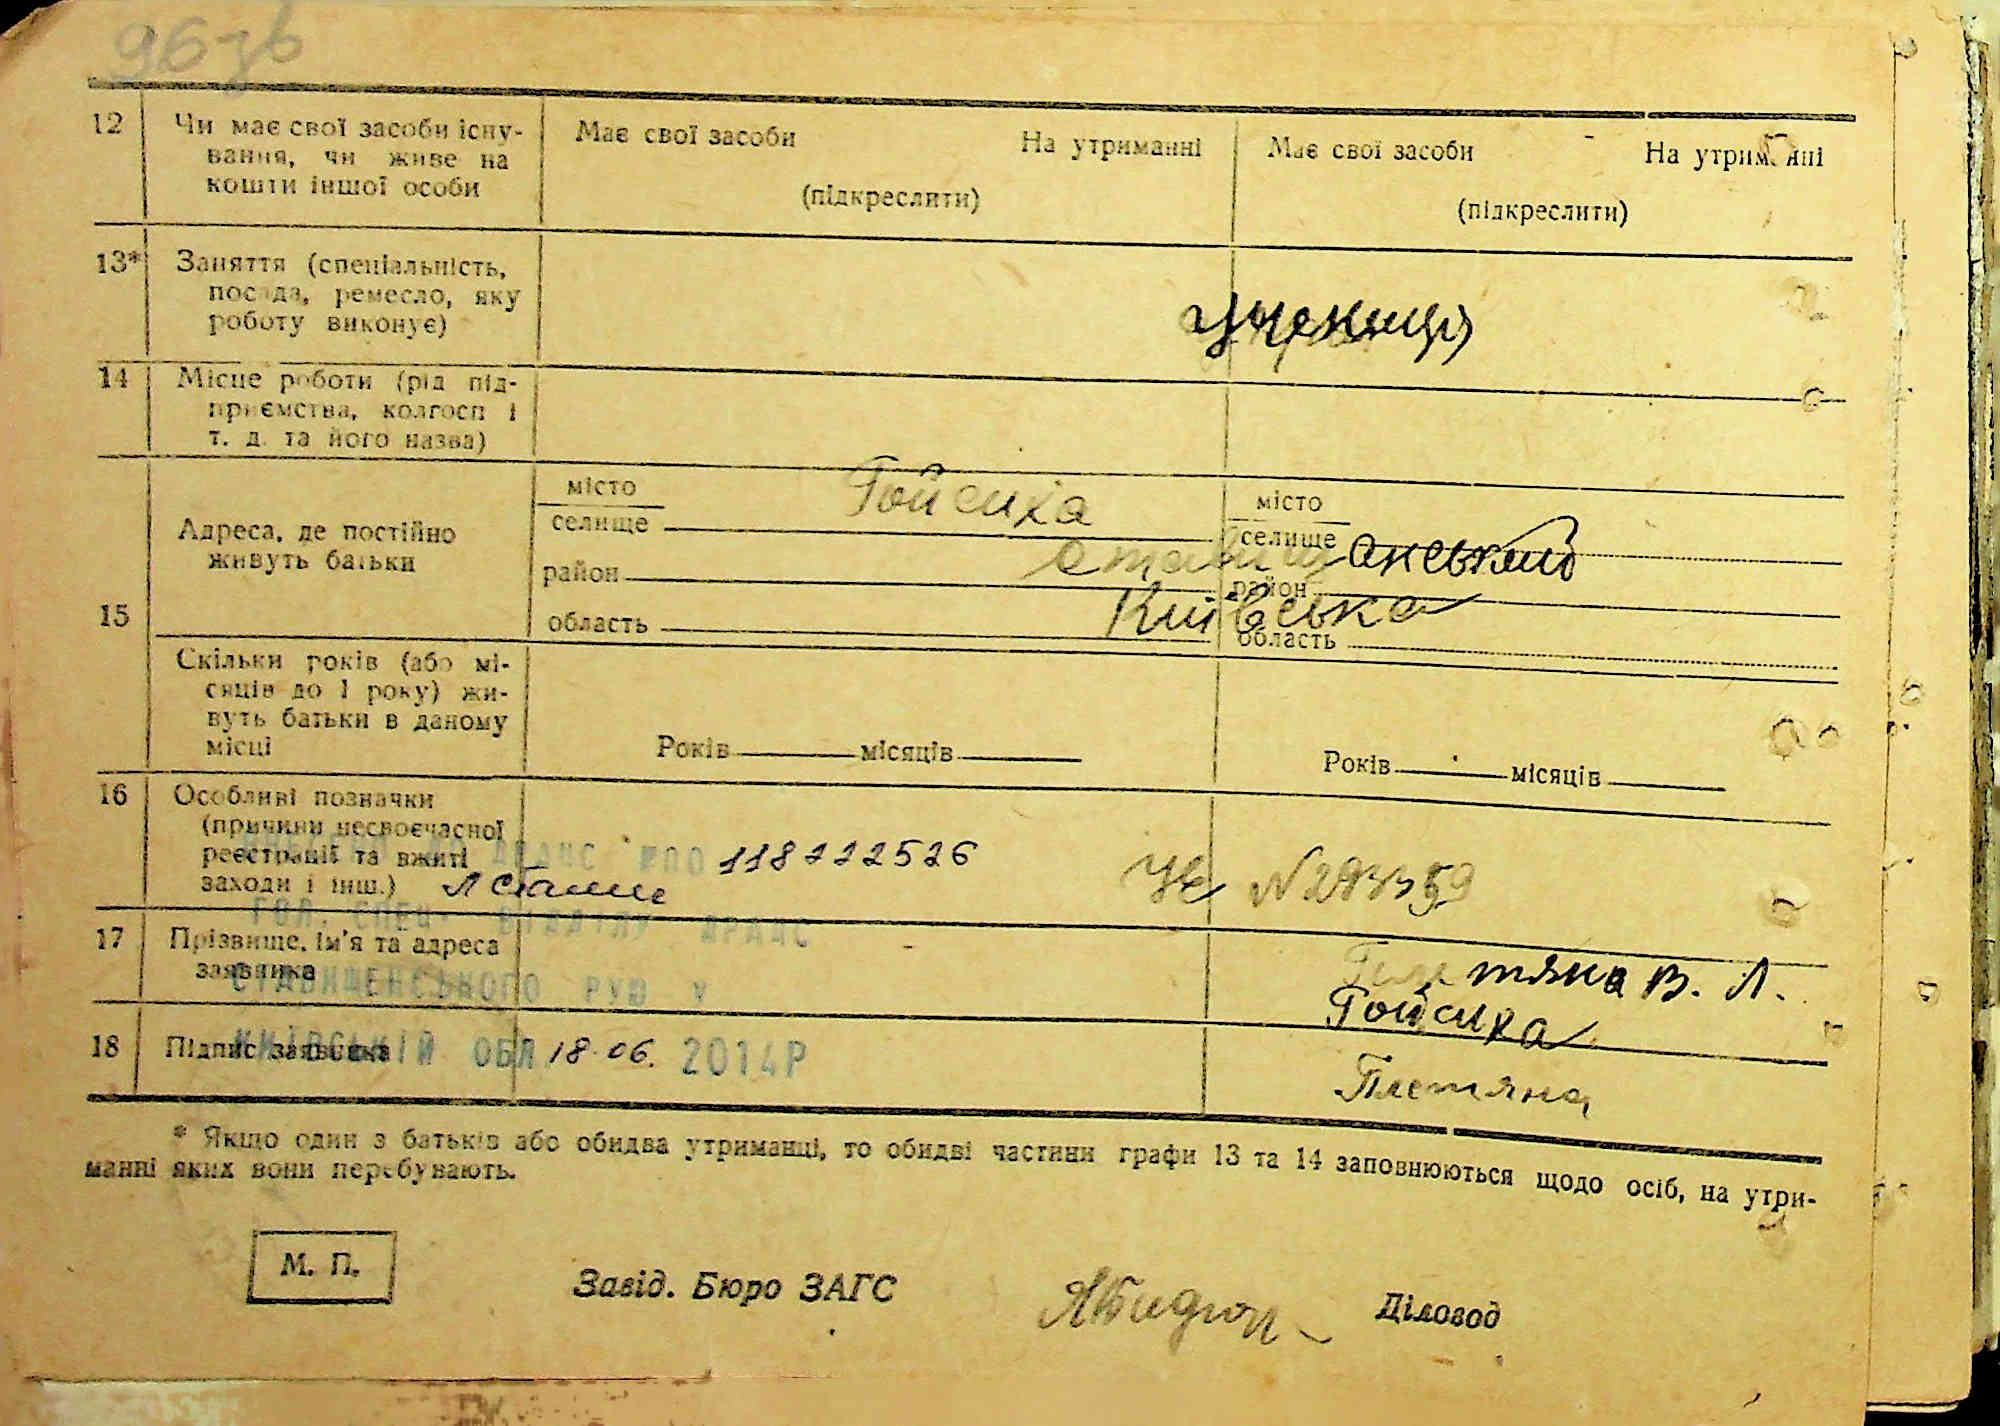 96зв
12 Чи має свої засоби існу-
вання, чи живе на
кошти іншої особи
Має свої засоби На утриманні
(підкреслити)
Має свої засоби На утриманні
(підкреслити)
13* Заняття (спеціальність,
посада, ремесло, яку
роботу виконує)
учениця
14 Місце роботи (рід під-
приємства, колгосп і
т. д. та його назва)
15 Адреса, де постійно
живуть батьки
місто
селище
Гойсиха
район
ставищанський
область
Київська
місто
селище
район
область
Скільки років (або мі-
сяців до 1 року) жи-
вуть батьки в даному
місці
Років місяців
Років місяців
16 Особливі позначки
(причини несвоєчасної
реєстрації та вжиті
заходи і інш.)
ДРАЦС 118222526
№
ГОЛ. СПЕЦ. ВІДДІЛУ ДРАЦС
СТАВИЩЕНСЬКОГО РУЮ У
КИЇВСЬКІЙ ОБЛ 18.06. 2014Р
17 Прізвище, ім'я та адреса
заявника
В. Л.
Гойсиха
18 Підпис заявника
Плетяна
* Якщо один з батьків або обидва утриманці, то обидві частини графи 13 та 14 заповнюються щодо осіб, на утри-
манні яких вони перебувають.
М. П.
Завід. Бюро ЗАГС
Діловод